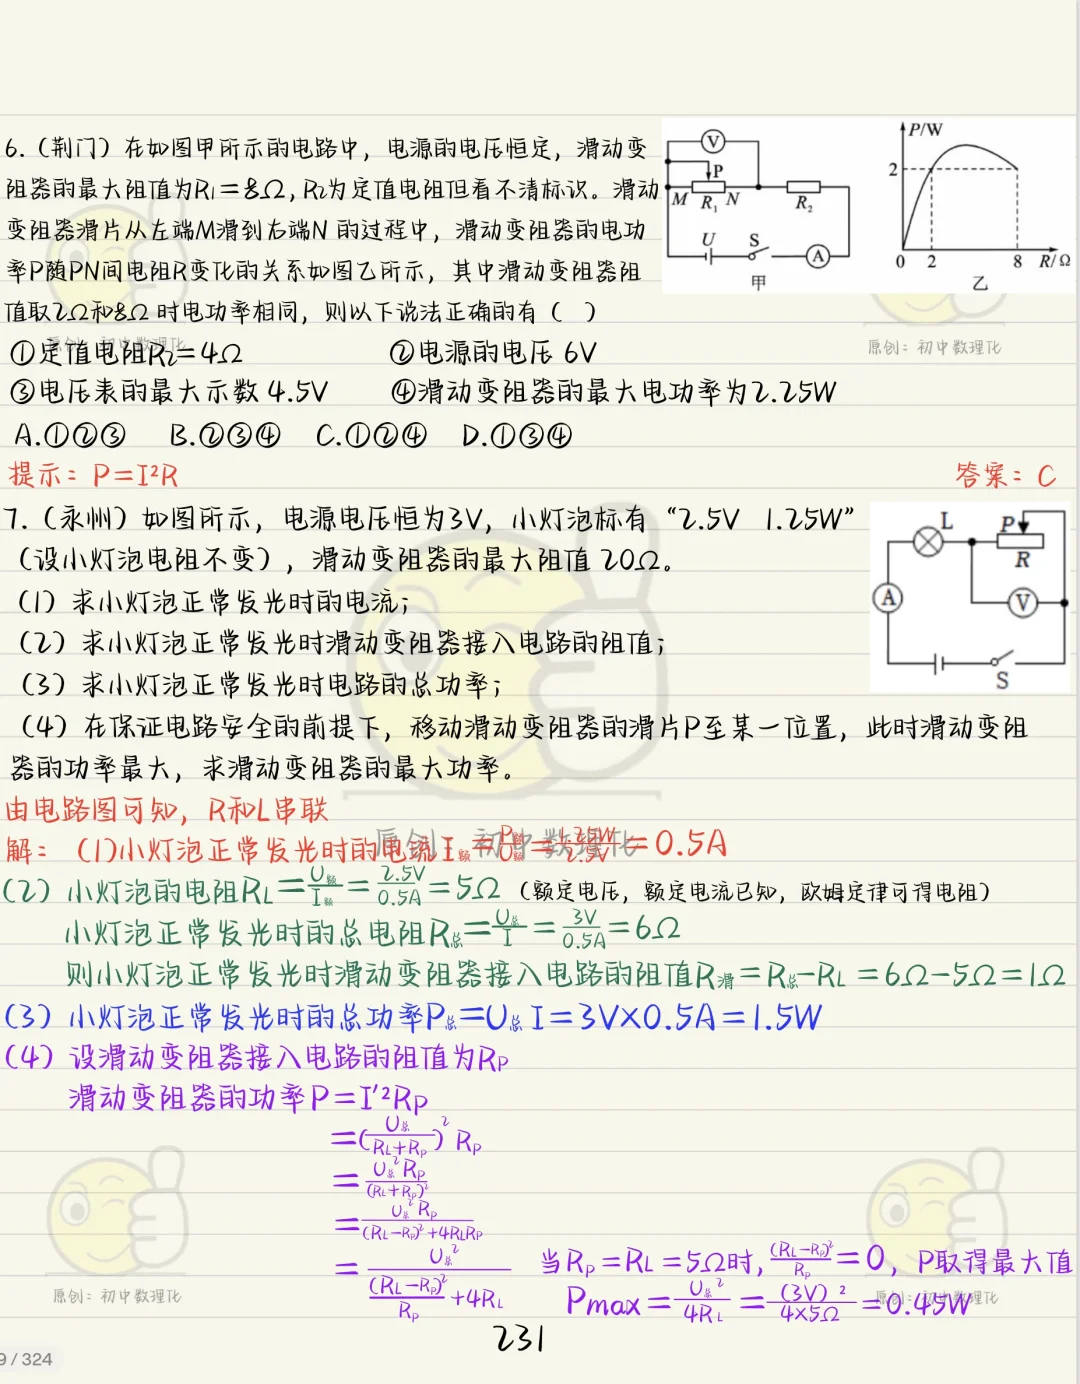 6.(荆门)在如图甲所示的电路中,电源的电压恒定,滑动变
阻器的最大阻值为R₁=8Ω,R₂为定值电阻但看不清标识。滑动
变阻器滑片从左端M滑到右端N的过程中,滑动变阻器的电功
率P随PN间电阻R变化的关系如图乙所示,其中滑动变阻器阻
值取2Ω和8Ω时电功率相同,则以下说法正确的有( )
V
P
M R₁ N R₂
U S A
甲
P/W
2
0 2 8 R/Ω
乙
原创:初中数理化
原创:初中数理化
①定值电阻R₂=4Ω ②电源的电压6V
③电压表的最大示数4.5V ④滑动变阻器的最大电功率为2.25W
A.①②③ B.②③④ C.①②④ D.①③④
提示:P=I²R 答案:C
7.(永州)如图所示,电源电压恒为3V,小灯泡标有“2.5V 1.25W”
(设小灯泡电阻不变),滑动变阻器的最大阻值20Ω。
(1)求小灯泡正常发光时的电流;
(2)求小灯泡正常发光时滑动变阻器接入电路的阻值;
(3)求小灯泡正常发光时电路的总功率;
(4)在保证电路安全的前提下,移动滑动变阻器的滑片P至某一位置,此时滑动变阻
器的功率最大,求滑动变阻器的最大功率。
L P
R
A V
S
由电路图可知,R和L串联
原创:初中数理化
解:(1)小灯泡正常发光时的电流I额=P额/U额=1.25W/2.5V=0.5A
(2)小灯泡的电阻RL=U额/I额=2.5V/0.5A=5Ω(额定电压,额定电流已知,欧姆定律可得电阻)
小灯泡正常发光时的总电阻R总=U总/I=3V/0.5A=6Ω
则小灯泡正常发光时滑动变阻器接入电路的阻值R滑=R总-RL=6Ω-5Ω=1Ω
(3)小灯泡正常发光时的总功率P总=U总I=3V×0.5A=1.5W
(4)设滑动变阻器接入电路的阻值为RP
滑动变阻器的功率P=I'²RP
=(U总/(RL+RP))²RP
=U总²RP/(RL+RP)²
=U总²RP/((RL-RP)²+4RLRP)
=U总²/((RL-RP)²/RP+4RL) 当RP=RL=5Ω时,(RL-RP)²/RP=0,P取得最大值
Pmax=U总²/4RL=(3V)²/4×5Ω=0.45W
原创:初中数理化
原创:初中数理化
231
9/324